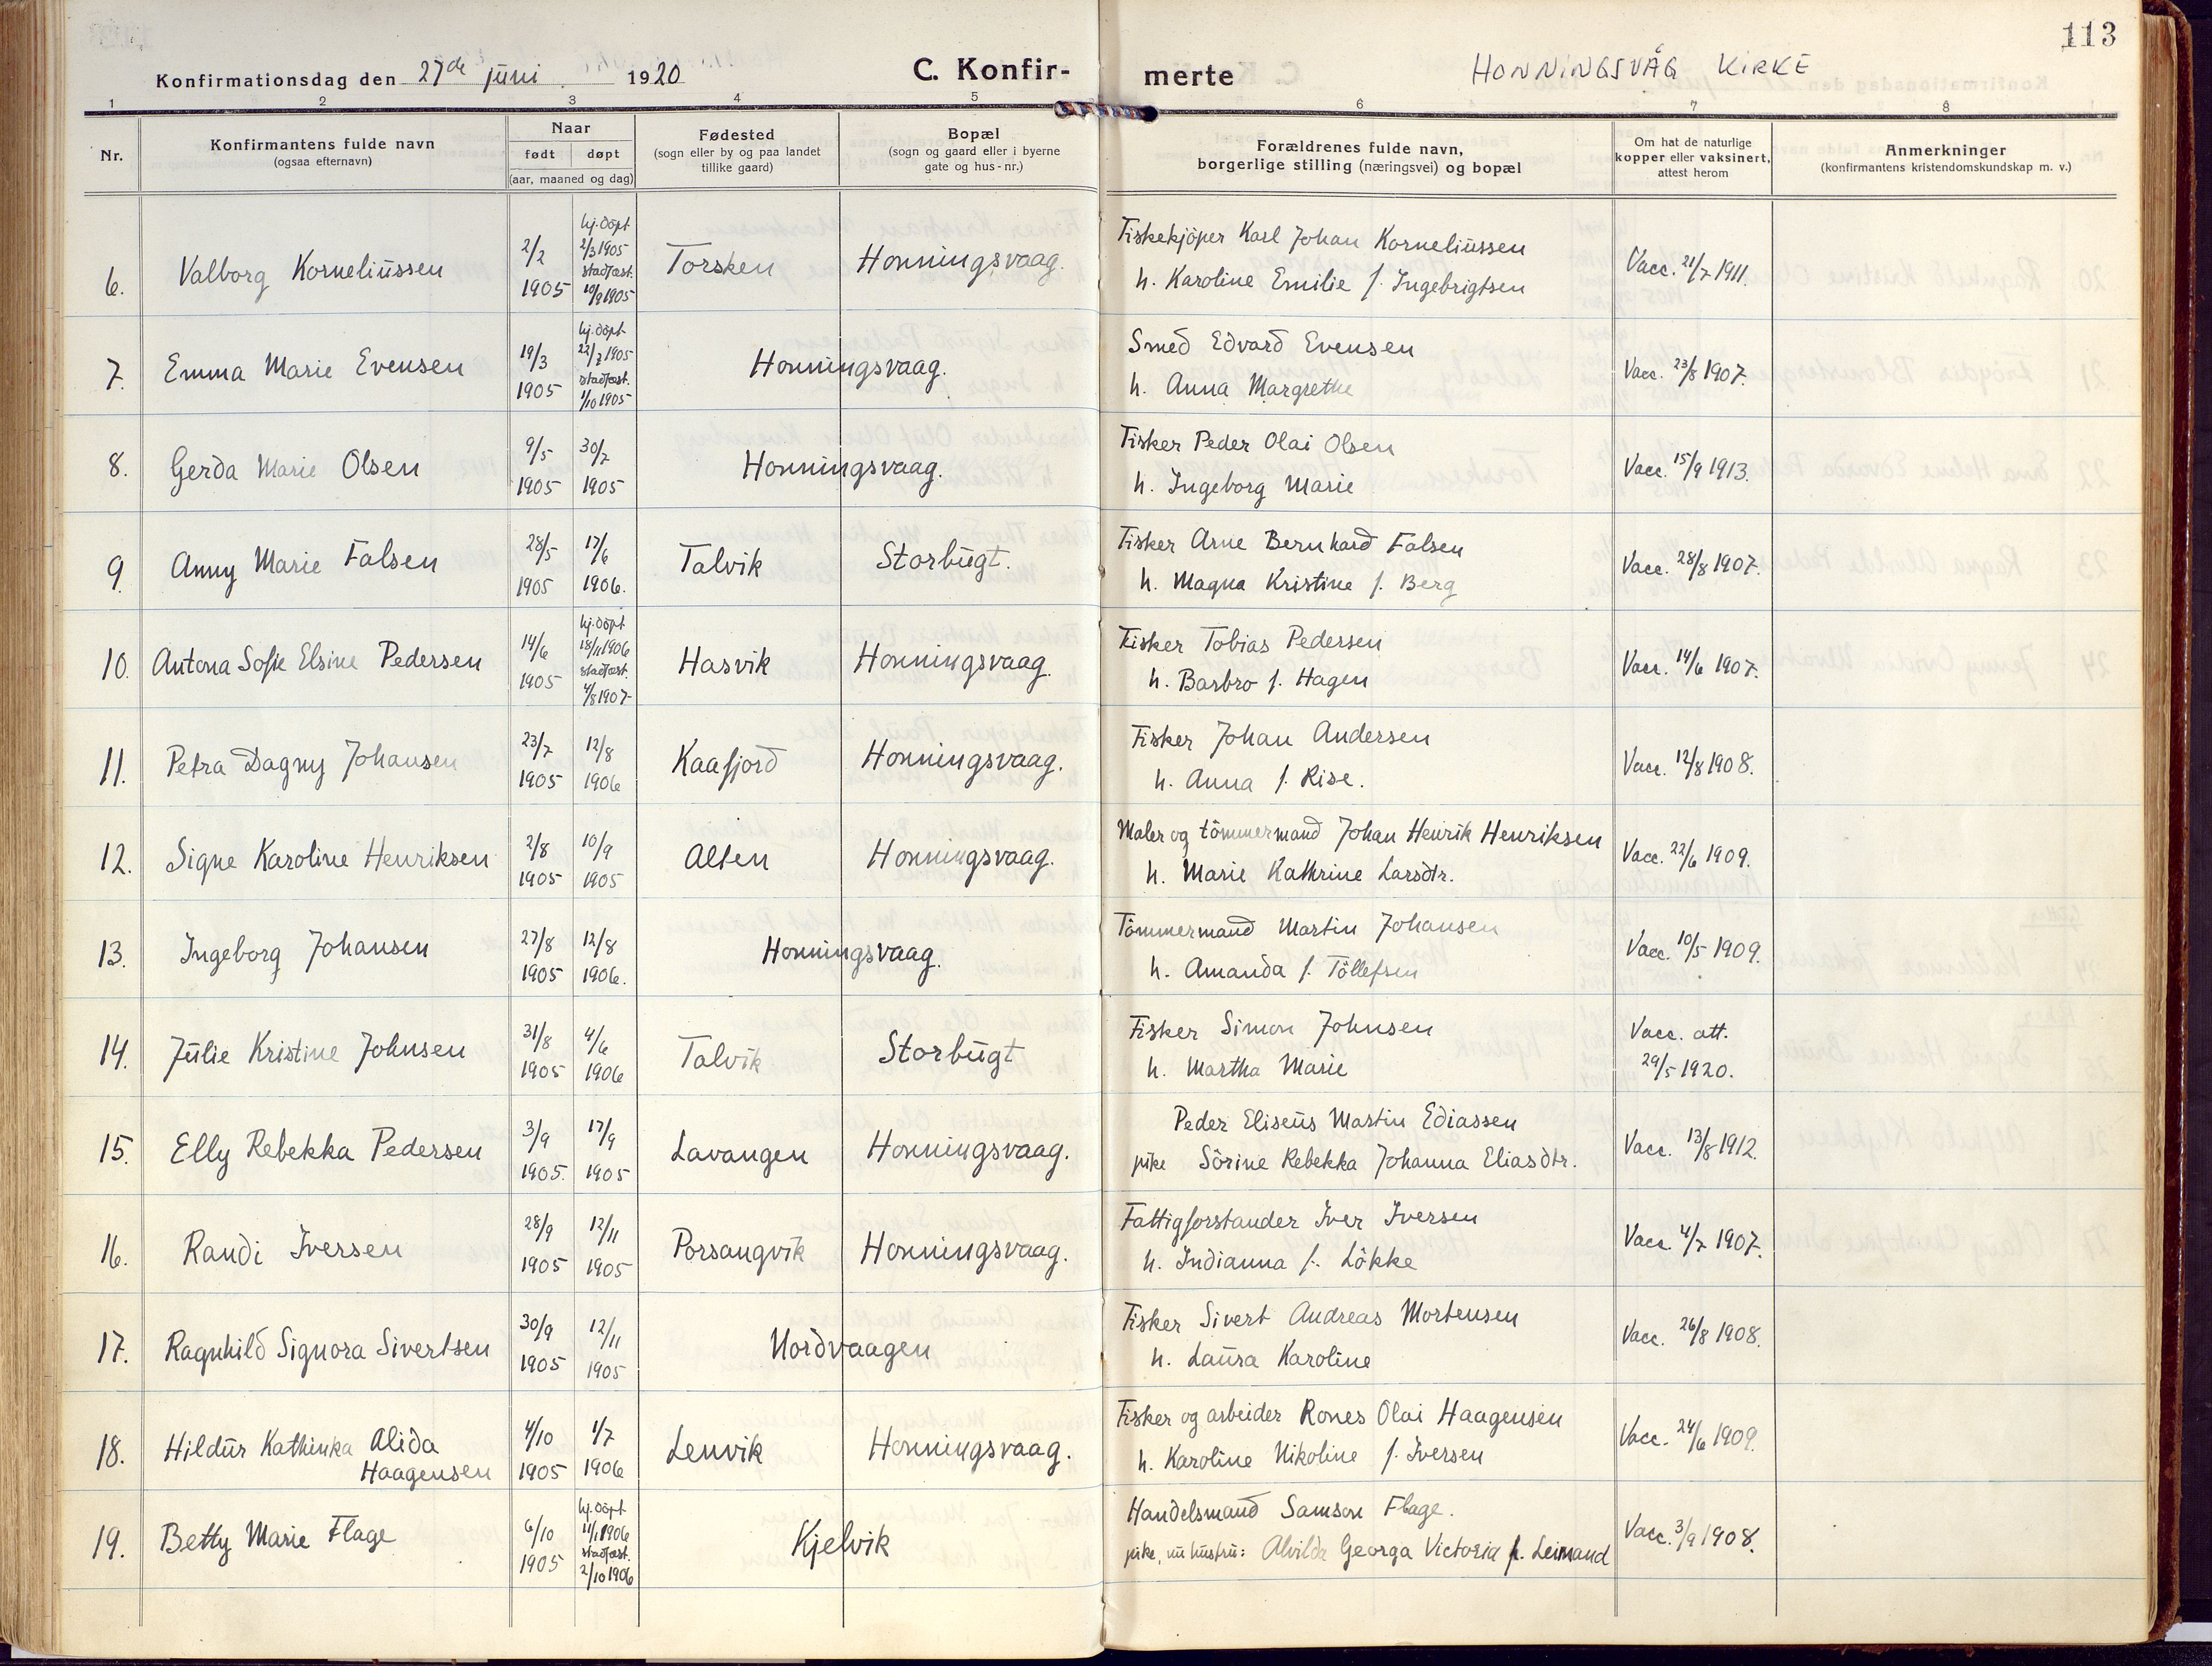 113
Konfirmationsdag den 27de juni 1920
C. Konfirmerte
HONNINGSVÅG KIRKE
1 2 3 4 5 6 7 8
Nr.
Konfirmantens fulde navn
(ogsaa efternavn)
Naar
født døpt
(aar, maaned og dag)
Fødested
(sogn eller by og paa landet
tillike gaard)
Bopæl
(sogn og gaard eller i byerne
gate og hus-nr.)
Forældrenes fulde navn,
borgerlige stilling (næringsvei) og bopæl
Om hat de naturlige
kopper eller vaksinert,
attest herom
Anmerkninger
(konfirmantens kristendomskundskap m. v.)
6. Valborg Korneliussen 2/2 1905 hj. döpt 2/3 1905 stadfæst. 10/9 1905 Torsken Honningsvaag.
Fiskekjöper Karl Johan Korneliussen
h. Karoline Emilie f. Ingebrigtsen
Vacc. 21/7 1911.
7. Emma Marie Evensen 19/3 1905 hj. döpt 22/7 1905 stadfæst. 1/10 1905 Honningsvaag.
Smed Edvard Evensen
h. Anna Margrethe
Vacc. 23/8 1907.
8. Gerda Marie Olsen 9/5 1905 30/7 1905 Honningsvaag.
Fisker Peder Olai Olsen
h. Ingeborg Marie
Vacc. 15/9 1913.
9. Anny Marie Falsen 28/5 1905 17/6 1906. Talvik Storbugt.
Fisker Arne Bernhard Falsen
h. Magna Kristine f. Berg
Vacc. 28/8 1907.
10. Antona Sofie Elsine Pedersen 14/6 1905 hj. döpt 18/11 1906 stadfæst. 4/8 1907 Hasvik Honningsvaag.
Fisker Tobias Pedersen
h. Barbro f. Hagen
Vacc. 14/6 1907.
11. Petra Dagny Johansen 23/7 1905 12/8 1906 Kaafjord Honningsvaag.
Fisker Johan Andersen
h. Anna f. Rise.
Vacc. 12/8 1908.
12. Signe Karoline Henriksen 2/8 1905 10/9 1905 Alten Honningsvaag.
Maler og tömmermand Johan Henrik Henriksen
h. Marie Kathrine Larsdtr.
Vacc. 22/6 1909.
13. Ingeborg Johansen 27/8 1905 12/8 1906. Honningsvaag.
Tömmermand Martin Johansen
h. Amanda f. Töllefsen
Vacc. 10/5 1909.
14. Julie Kristine Johnsen 31/8 1905 4/6 1906 Talvik Storbugt
Fisker Simon Johnsen
h. Martha Marie
Vacc. att.
29/5 1920.
15. Elly Rebekka Pedersen 3/9 1905. 17/9 1905 Lavangen Honningsvaag.
Peder Eliseus Martin Ediassen
pike Sörine Rebekka Johanna Eliasdtr.
Vacc. 13/8 1912.
16. Randi Iversen 28/9 1905 12/11 1905 Porsangvik Honningsvaag.
Fattigforstander Iver Iversen
h. Indianna f. Lökke
Vacc. 4/7 1907.
17. Ragnhild Signora Sivertsen 30/9 1905 12/11 1905 Nordvaagen
Fisker Sivert Andreas Mortensen
h. Laura Karoline
Vacc. 26/8 1908.
18. Hildur Kathinka Alida
Haagensen 4/10 1905 1/7 1906 Lenvik Honningsvaag.
Fisker og arbeider Rones Olai Haagensen
h. Karoline Nikoline f. Iversen
Vacc. 24/6 1909.
19. Betty Marie Flage 6/10 1905 hj. döpt 11/1 1906 stadfæst. 2/10 1906 Kjelvik
Handelsmand Samson Flage.
pike, nu hustru: Alvilda Georga Victoria f. Leimand
Vacc. 3/9 1908.